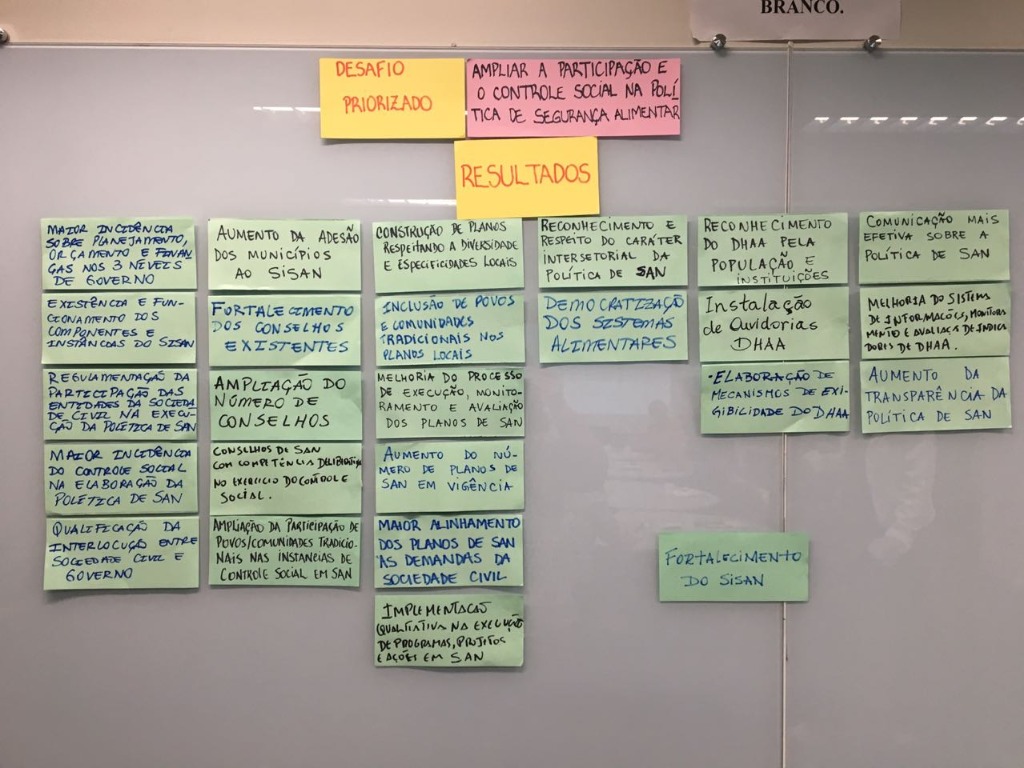 BRANCO.
DESAFIO
PRIORIZADO
AMPLIAR A PARTICIPAÇÃO E
O CONTROLE SOCIAL NA POLÍ
TICA DE SEGURANÇA ALIMENTAR
RESULTADOS
MAIOR INCIDÊNCIA
SOBRE PLANEJAMENTO,
ORÇAMENTO E FINAN
ÇAS NOS 3 NÍVEIS
DE GOVERNO
EXISTÊNCIA E FUN-
CIONAMENTO DOS
COMPONENTES E
INSTÂNCIAS DO SISAN
REGULAMENTAÇÃO DA
PARTICIPAÇÃO DAS
ENTIDADES DA SOCIEDA
DE CIVIL NA EXECU-
ÇÃO DA POLÍTICA DE SAN
MAIOR INCIDÊNCIA
DO CONTROLE SOCIAL
NA ELABORAÇÃO DA
POLÍTICA DE SAN
QUALIFICAÇÃO DA
INTERLOCUÇÃO ENTRE
SOCIEDADE CIVIL E
GOVERNO
AUMENTO DA ADESÃO
DOS MUNICÍPIOS
AO SISAN
FORTALECIMENTO
DOS CONSELHOS
EXISTENTES
AMPLIAÇÃO DO
NÚMERO DE
CONSELHOS
CONSELHOS DE SAN
COM COMPETÊNCIA DELIBERATIVA
NO EXERCÍCIO DO CONTROLE
SOCIAL.
AMPLIAÇÃO DA PARTICIPAÇÃO DE
POVOS/COMUNIDADES TRADICIO-
NAIS NAS INSTÂNCIAS DE
CONTROLE SOCIAL EM SAN
CONSTRUÇÃO DE PLANOS
RESPEITANDO A DIVERSIDADE
E ESPECIFICIDADES LOCAIS
INCLUSÃO DE POVOS
E COMUNIDADES
TRADICIONAIS NOS
PLANOS LOCAIS
MELHORIA DO PROCESSO
DE EXECUÇÃO, MONITO-
RAMENTO E AVALIAÇÃO
DOS PLANOS DE SAN
AUMENTO DO NÚ-
MERO DE PLANOS DE
SAN EM VIGÊNCIA
MAIOR ALINHAMENTO
DOS PLANOS DE SAN
ÀS DEMANDAS DA
SOCIEDADE CIVIL
IMPLEMENTAÇÃO
QUALITATIVA NA EXECUÇÃO
DE PROGRAMAS, PROJETOS
E AÇÕES EM SAN
RECONHECIMENTO E
RESPEITO DO CARÁTER
INTERSETORIAL DA
POLÍTICA DE SAN
DEMOCRATIZAÇÃO
DOS SISTEMAS
ALIMENTARES
RECONHECIMENTO
DO DHAA PELA
POPULAÇÃO E
INSTITUIÇÕES
Instalação
de Ouvidorias
DHAA
• ELABORAÇÃO DE
MECANISMOS DE EXI-
GIBILIDADE DO DHAA
COMUNICAÇÃO MAIS
EFETIVA SOBRE A
POLÍTICA DE SAN
MELHORIA DO SISTEMA
DE INFORMAÇÕES, MONITORA
MENTO E AVALIAÇÃO DE INDICA
DORES DE DHAA.
AUMENTO DA
TRANSPARÊNCIA DA
POLÍTICA DE SAN
FORTALECIMENTO
DO SISAN